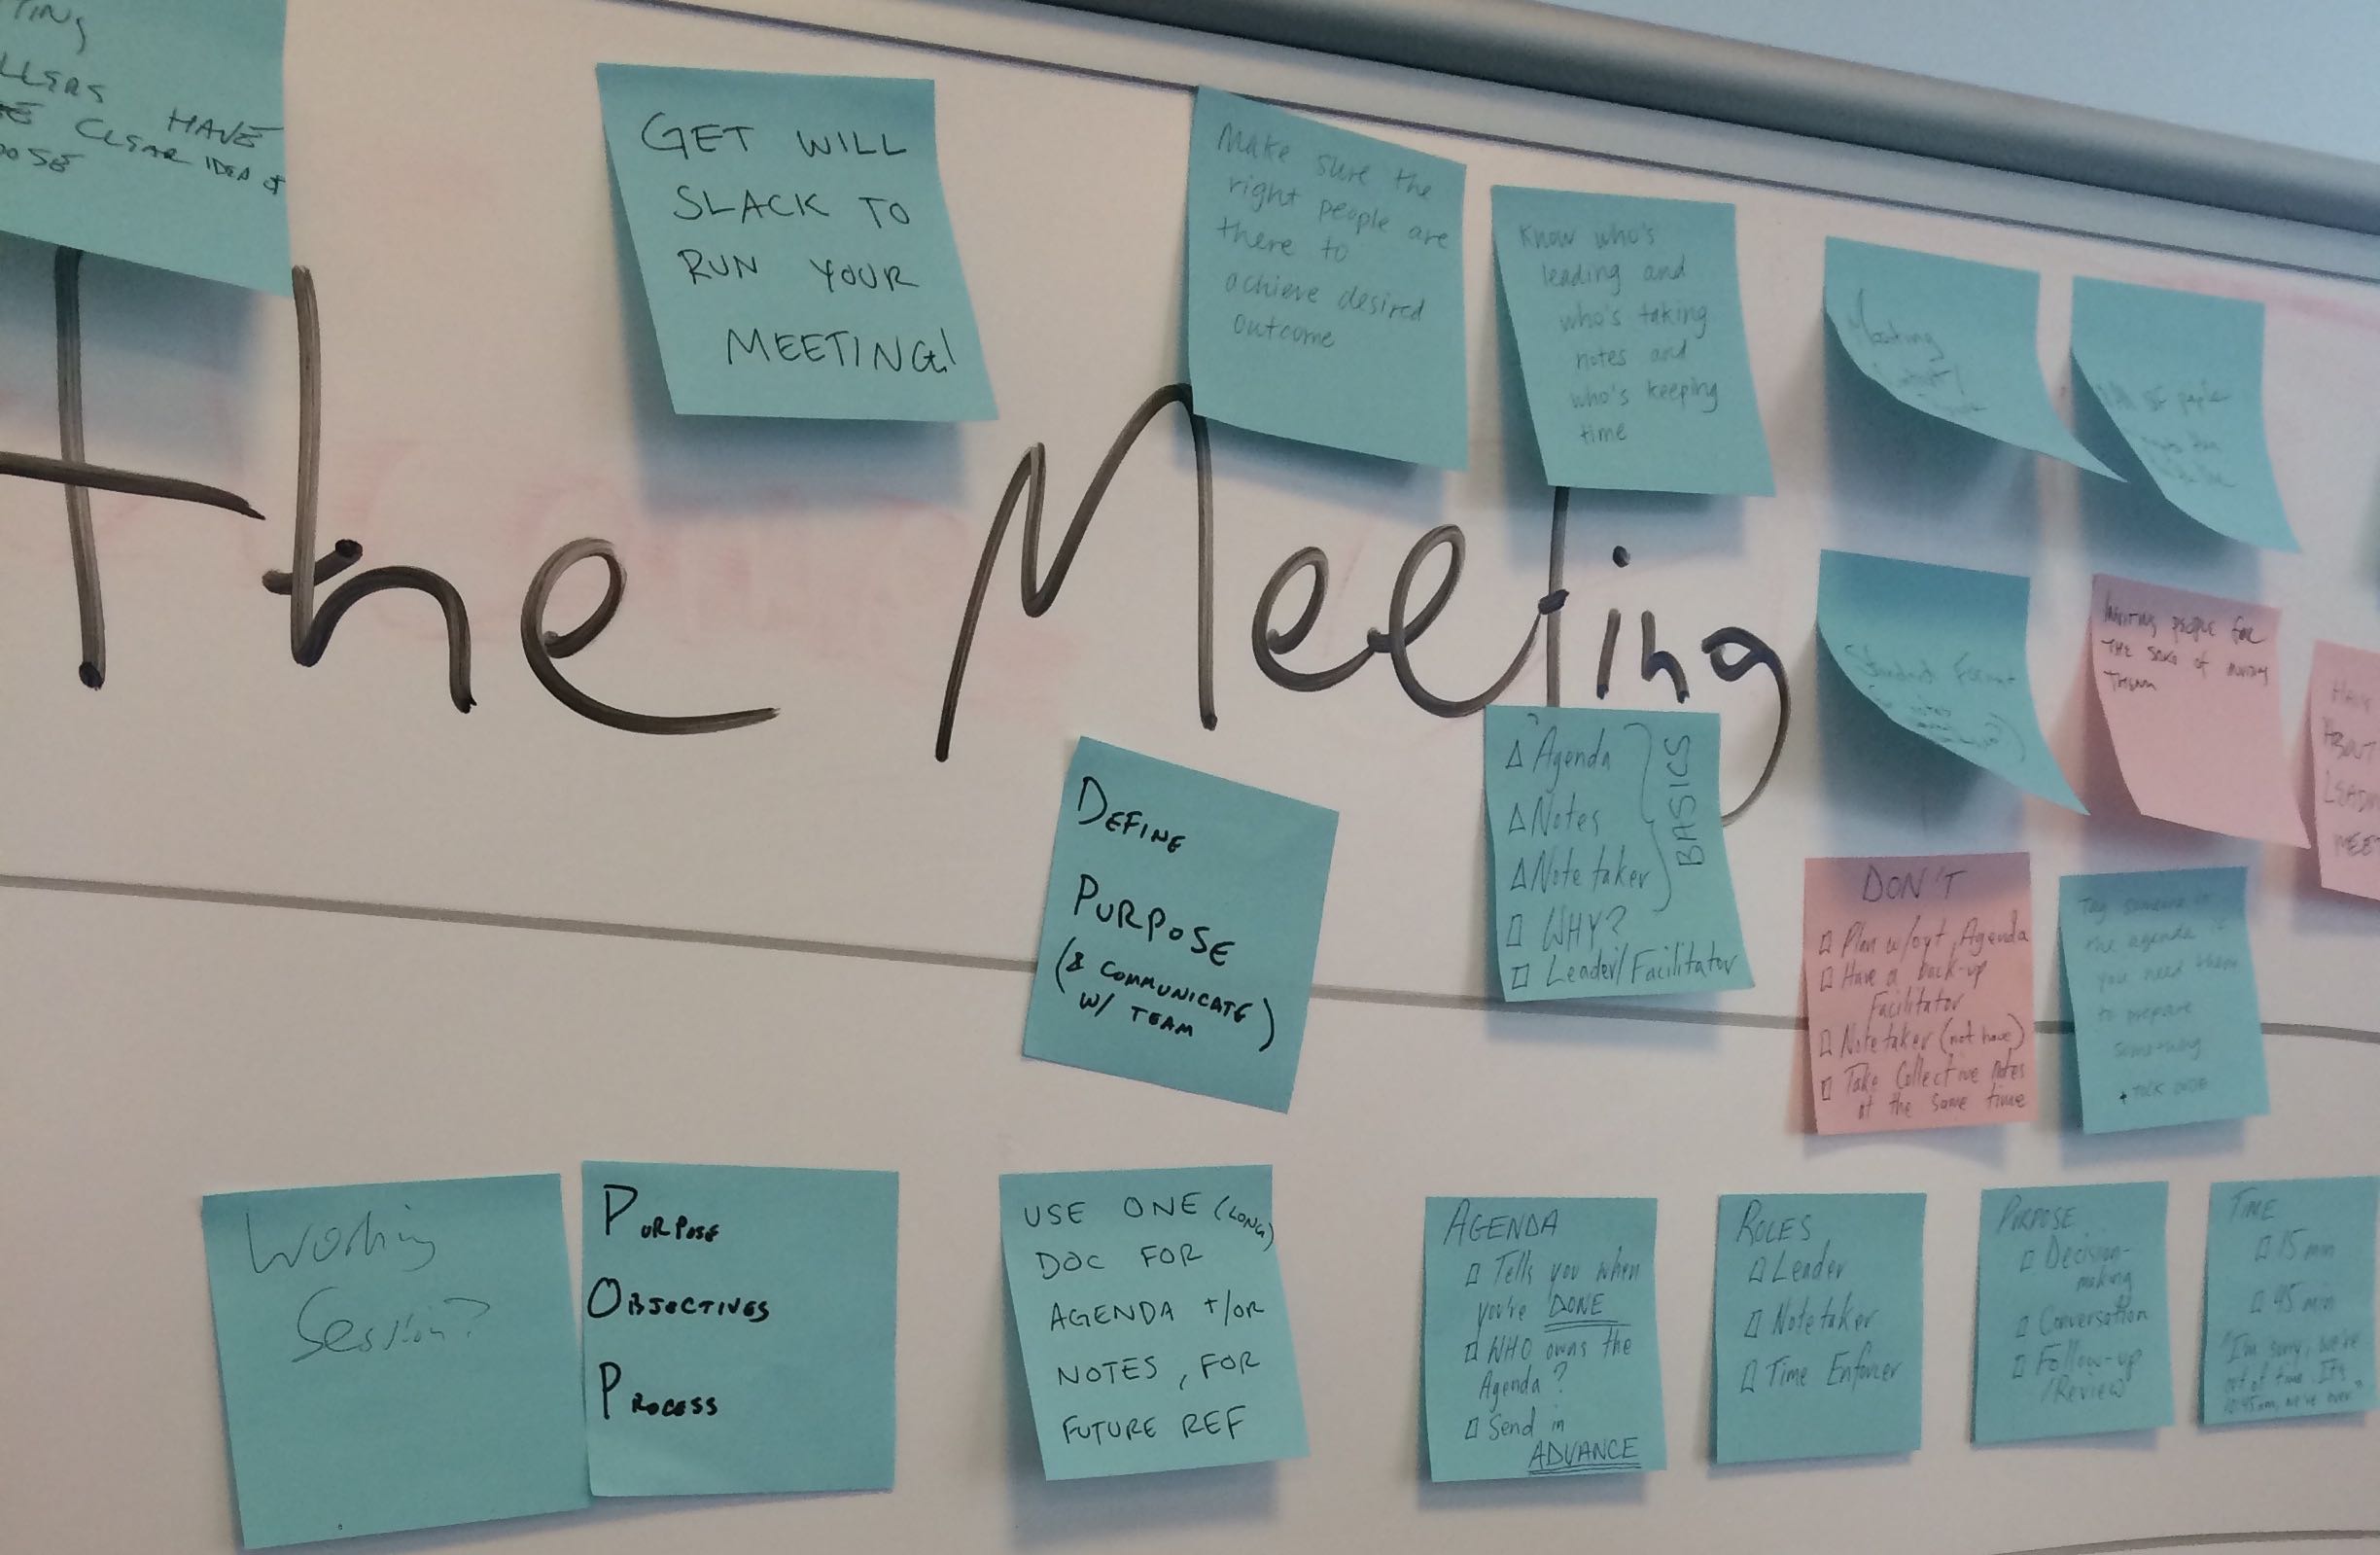 HAVE
CLEAR IDEA of
GET WILL
SLACK TO
RUN YOUR
MEETING!
Make sure the
right people are
there to
achieve desired
outcome
Know who's
leading and
who's taking
notes and
who's keeping
time
Meeting
people
The Meeting
Standard Format
Inviting people for
THE sake of inviting
THEM
ABOUT
DEFINE
PURPOSE
(& COMMUNICATE
W/ TEAM)
Agenda
Notes
Notetaker
BASICS
WHY?
Leader/Facilitator
DON'T
Plan w/out Agenda
Have a back-up
Facilitator
Notetaker (not have)
Take Collective notes
at the same time
Tag someone in
the agenda if
you need them
to prepare
something
Working
Session?
PURPOSE
OBJECTIVES
PROCESS
USE ONE (LONG)
DOC FOR
AGENDA +/OR
NOTES, FOR
FUTURE REF
AGENDA
Tells you when
you're DONE
WHO owns the
Agenda?
Send in
ADVANCE
ROLES
Leader
Notetaker
Time Enforcer
PURPOSE
Decision-
making
Conversation
Follow-up
/Review
TIME
15 min
45 min
"I'm sorry, we're
out of time. It's
10:45am, we're over"